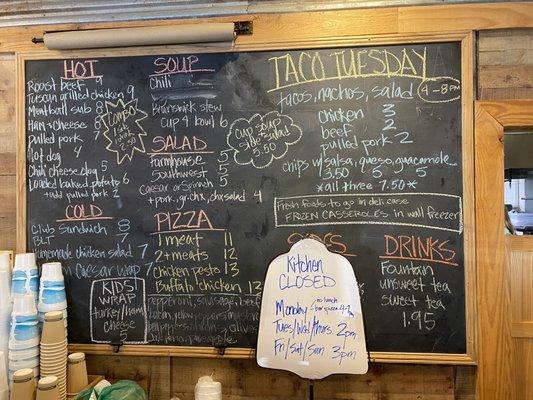 HOT
Roast beef 9
Tuscan grilled chicken 9
Meatball sub 8
Ham & cheese 9
Pulled pork 7
Hot dog 4
Chili cheese dog 5
Loaded baked potato 6
+ add pulled pork 2
COMBO
side
soup
5.50
COLD
Club Sandwich 8
BLT 7
Homemade chicken salad 7
Caesar wrap 7
KIDS'
WRAP
turkey/ham
cheese
3
SOUP
Chili
Brunswick stew
cup 4 bowl 6
SALAD
Farmhouse 5
Southwest 5
Caesar or Spinach 5
+ pork, gr.chx, chx salad 4
cup SOUP or
side salad
5.50
PIZZA
1 meat 11
2+ meats 12
chicken pesto 13
Buffalo chicken 12
pepperoni, sausage, beef
bacon, yellow peppers
olives
TACO TUESDAY
4-8PM
tacos, nachos, salad
chicken 3
beef 2
pulled pork 2
chips w/ salsa, queso, guacamole
3.50 5 5
*all three 7.50*
Fresh foods to go in deli case
FROZEN CASSEROLES in wall freezer
DRINKS
Fountain
unsweet tea
sweet tea
1.95
Kitchen
CLOSED
Monday - no lunch
Tues/Wed/Thurs 2pm
Fri/Sat/Sun 3pm